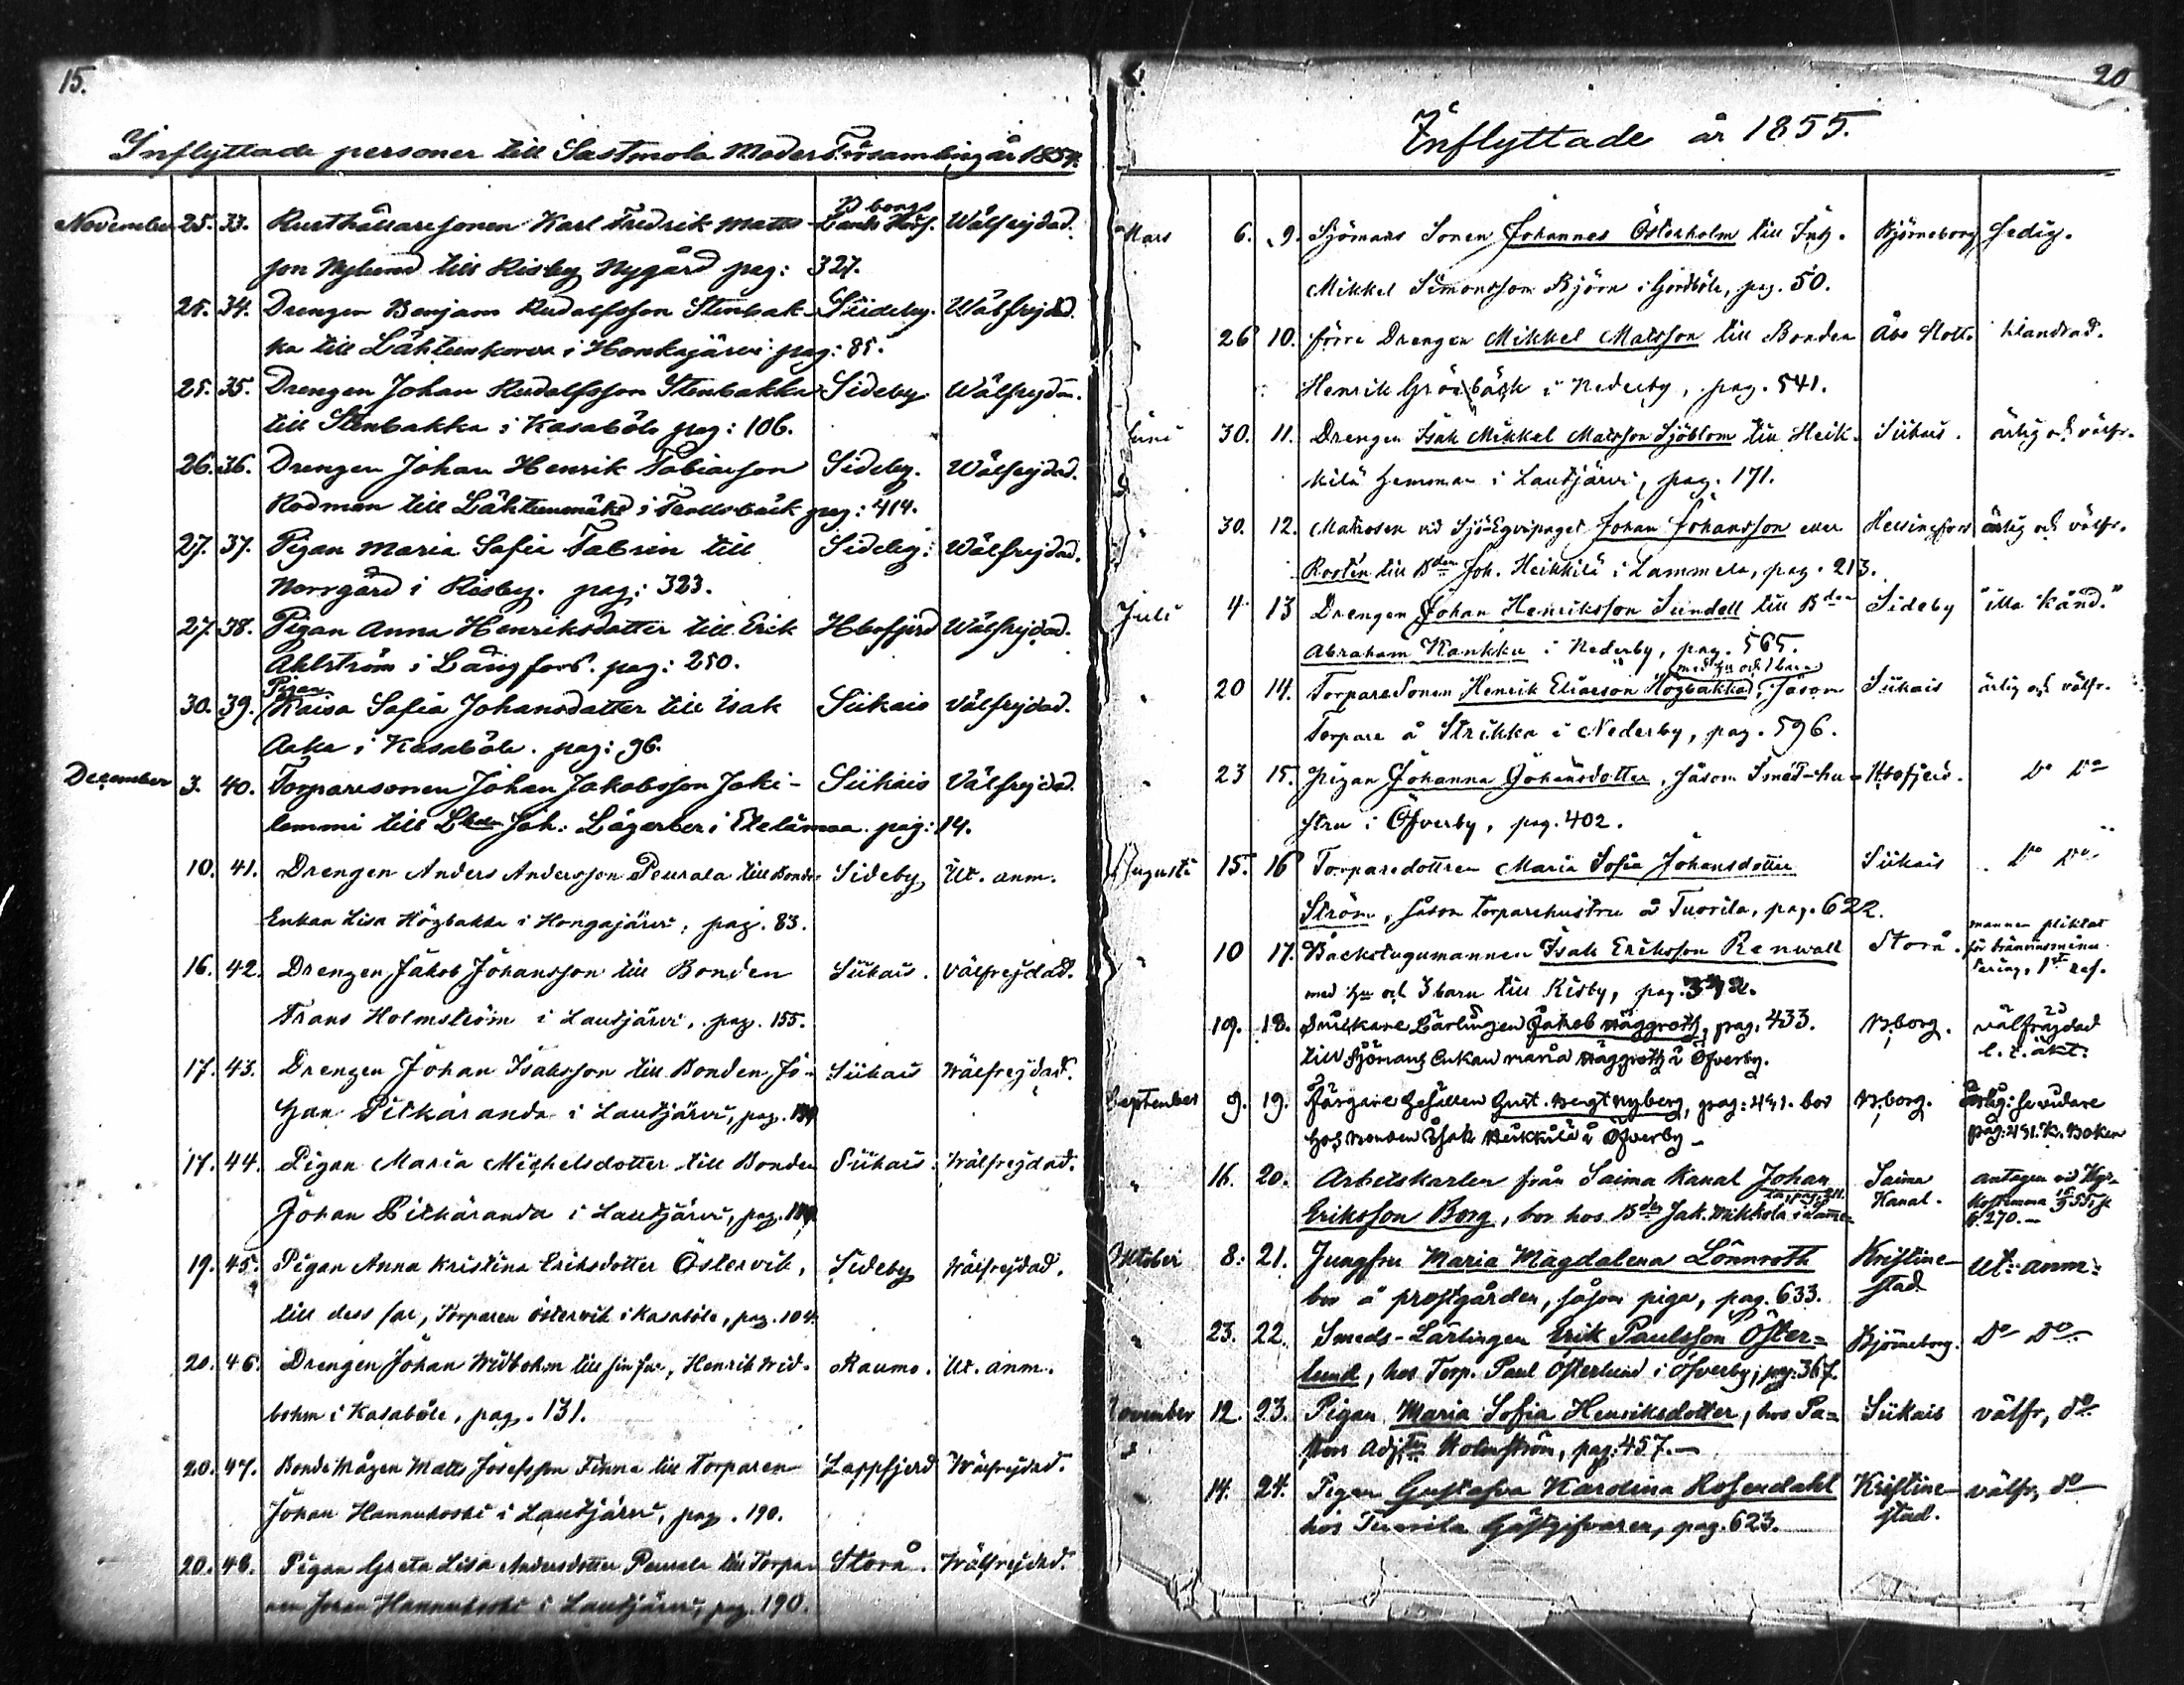 15.
Inflyttade personer till Sastmola Moder Församling år 1854.
B:borgs
November 25. 33. Rusthållaresonen Karl Fredrik Matts- Länds Hösf. Wälfrejdad.
son Nylund till Risby Nygård pag: 327.
25. 34. Drengen Benjam Rudolfsson Stenbak- Siideby. Wälfrejdad.
ka till Lähteenkorva i Honkajärvi pag: 85.
25. 35. Drengen Johan Rudolfsson Stenbakka Sideby Wälfrejdad.
till Stenbakka i Kasaböle pag: 106.
26. 36. Drengen Johan Henrik Tobiasson Sideby. Wälfrejdad.
Rodman till Lähteenmäki i Trollsbäck pag: 414.
27. 37. Pigan Maria Sofia Fabrin till Sideby. Wälfrejdad.
Norrgård i Risby. pag: 323.
27. 38. Pigan Anna Henriksdotter till Erik Hbofjerd Wälfrejdad.
Ahlström i Långfors. pag: 250.
Pigan
30. 39. Kaisa Sofia Johansdatter till Isak Siikais välfrejdad.
Aaka i Kasaböle. pag: 96.
December 3. 40. Torparesonen Johan Jakobsson Joki- Siikais Välfrejdad.
lammi till Joh: Lägerber i Etelämaa. pag: 14.
10. 41. Drengen Anders Andersson Peurala till Bonde- Sideby Ut. anm.
Enkan Lisa Högbakka i Hongajärvi, pag. 83.
16. 42. Drengen Jakob Johansson till Bonden Siikais. välfrejdad.
Frans Holmström i Lautjärvi, pag. 155.
17. 43. Drengen Johan Isaksson till Bonden Jo- Siikais Wälfrejdad.
han Pitkäranda i Lautjärvi, pag.
17. 44. Pigan Maria Michelsdotter till Bonden Siikais. Wälfrejdad.
Johan Pitkäranda i Lautjärvi, pag.
19. 45. Pigan Anna Kristina Eriksdotter Östervik, Sideby Wälfrejdad.
till dess far, Torparen Östervik i Kasaböle, pag. 104.
20. 46. Drengen Johan Widbohm till sin far, Henrik Wid- Raumo. Ut. anm.
bohm i Kasaböle, pag. 131.
20. 47. Bonde Mågen Matts Josefsson Finne till Torparen Lappfjerd Wälfrejdad.
Johan Hannukoski i Lautjärvi, pag. 190.
20. 48. Pigan Greta Lisa Andersdotter Peurala till Torpa- Storå. Wälfrejdad.
ren Johan Hannukoski i Lautjärvi, pag. 190.
20
Inflyttade år 1855.
Mars 6. 9. Sjömans Sonen Johannes Österholm till Inh. Björneborg fredig.
Mikkel Simonsson Björn i Gördböle, pag. 50.
26 10. förre Drengen Mikkel Matsson till Bonden Åbo Slott. klandrad.
Henrik Grönbäck i Nederby, pag. 541.
Juni 30. 11. Drengen Isak Mikkel Matsson Sjöblom till Heik- Siikais. ärlig och välfr.
kilä hemman i Lautjärvi, pag. 171.
" 30. 12. Matrosen vid Sjö-Eqvipaget Johan Johansson eller Helsingfors ärlig och välfr.
Rostén till Bden Joh. Heikkilä i Lammela, pag. 213.
Juli 4 13 Drengen Johan Henriksson Sundell till Bden Sideby "illa känd."
Abraham Kankku i Nederby, pag. 565.
med hu och 1 barn
" 20 14. TorpareSonen Henrik Eliasson Högbakka, såsom Siikais ärlig och välfr.
Torpare å Strikka i Nederby, pag. 596.
" 23 15. Pigan Johanna Johansdotter, såsom Smed-hu- Hbofjerd. Do Do
stru i Öfverby, pag. 402.
Augusti 15. 16 Torparedottren Maria Sofia Johansdotter Siikais Do Do
Ström, såsom torparehustru å Tuorila, pag. 622.
" 10 17. Backstugumannen Isak Eriksson Renwall Storå. mannen pliktat
för bränvinsminu-
tering, 1sta res.
med hu och 3 barn till Risby, pag.
19. 18. Snickare Lärlingen Jakob Häggroth, pag. 433. B:borg. välfrejdad
till Sjömans Enkan Maria Häggroth i Öfverby. l. t. äkt.
September 9. 19. Färgare Gesällen Gust. Bengt Nyberg, pag: 491. bor B:borg. ärlig: se vidare
hos Bonden Isak Heikkilä i Öfverby – pag: 491. K. Boken
" 16. 20. Arbetskarlen från Saima Kanal Johan Saima Kanal. antagen vid Kyr-
Eriksson Borg, bor hos Bden Jak. Mikkola i Lamme- kostämma
la, pag. 211. § 270.–
Oktober 8. 21. Jungfru Maria Magdalena Lönnroth Kristine- Ut: anm:
bor å prostgården, såsom piga, pag. 633. stad
" 23. 22. Smeds-Lärlingen Erik Paulsson Öster- Björneborg. Do Do
lund, hos Torp. Paul Österlund i Öfverby; pag: 367.
November 12. 23. Pigan Maria Sofia Henriksdotter, hos Pa- Siikais välfr, do
stors Adj:n Holmström, pag: 457.–
14. 24. Pigan Gustafva Karolina Rosendahl Kristine- välfr, do
hos Tuorila Gästgifvaren, pag. 623. stad.